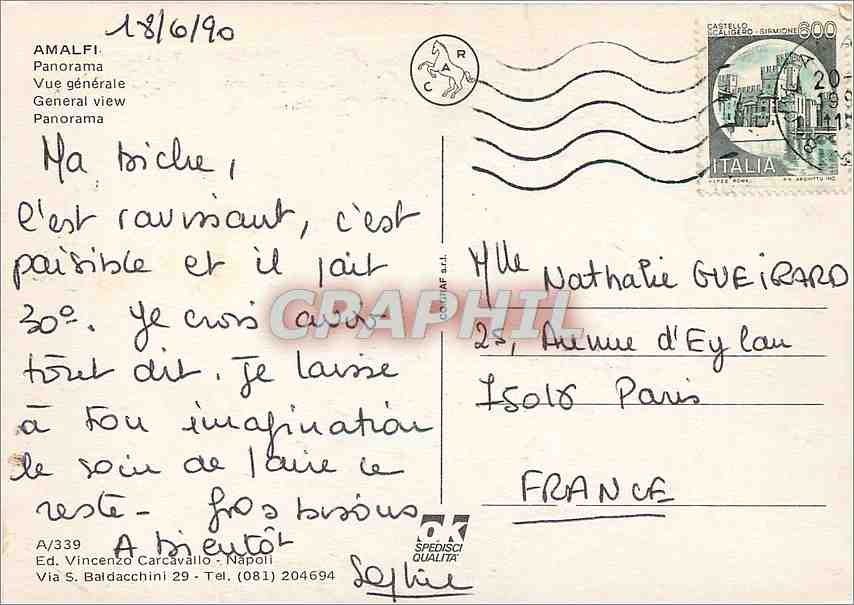 18/6/90
AMALFI
Panorama
Vue générale
General view
Panorama
CAR
CASTELLO
SCALIGERO - SIRMIONE 600
20
19
11
ITALIA
I.P.Z.S. ROMA
Ma biche,
C'est ravissant, c'est
paisible et il fait
30º. Je crois avoir
tout dit. Je laisse
à ton imagination
le soin de faire ce
reste - gros bisous
A bientôt
Sophie
CO.GRAF s.r.l.
Mlle Nathalie GUEIRARD
25, Avenue d'Eylau
75016 Paris
FRANCE
OK
SPEDISCI
QUALITA'
A/339
Ed. Vincenzo Carcavallo - Napoli
Via S. Baldacchini 29 - Tel. (081) 204694
CPARPHIL